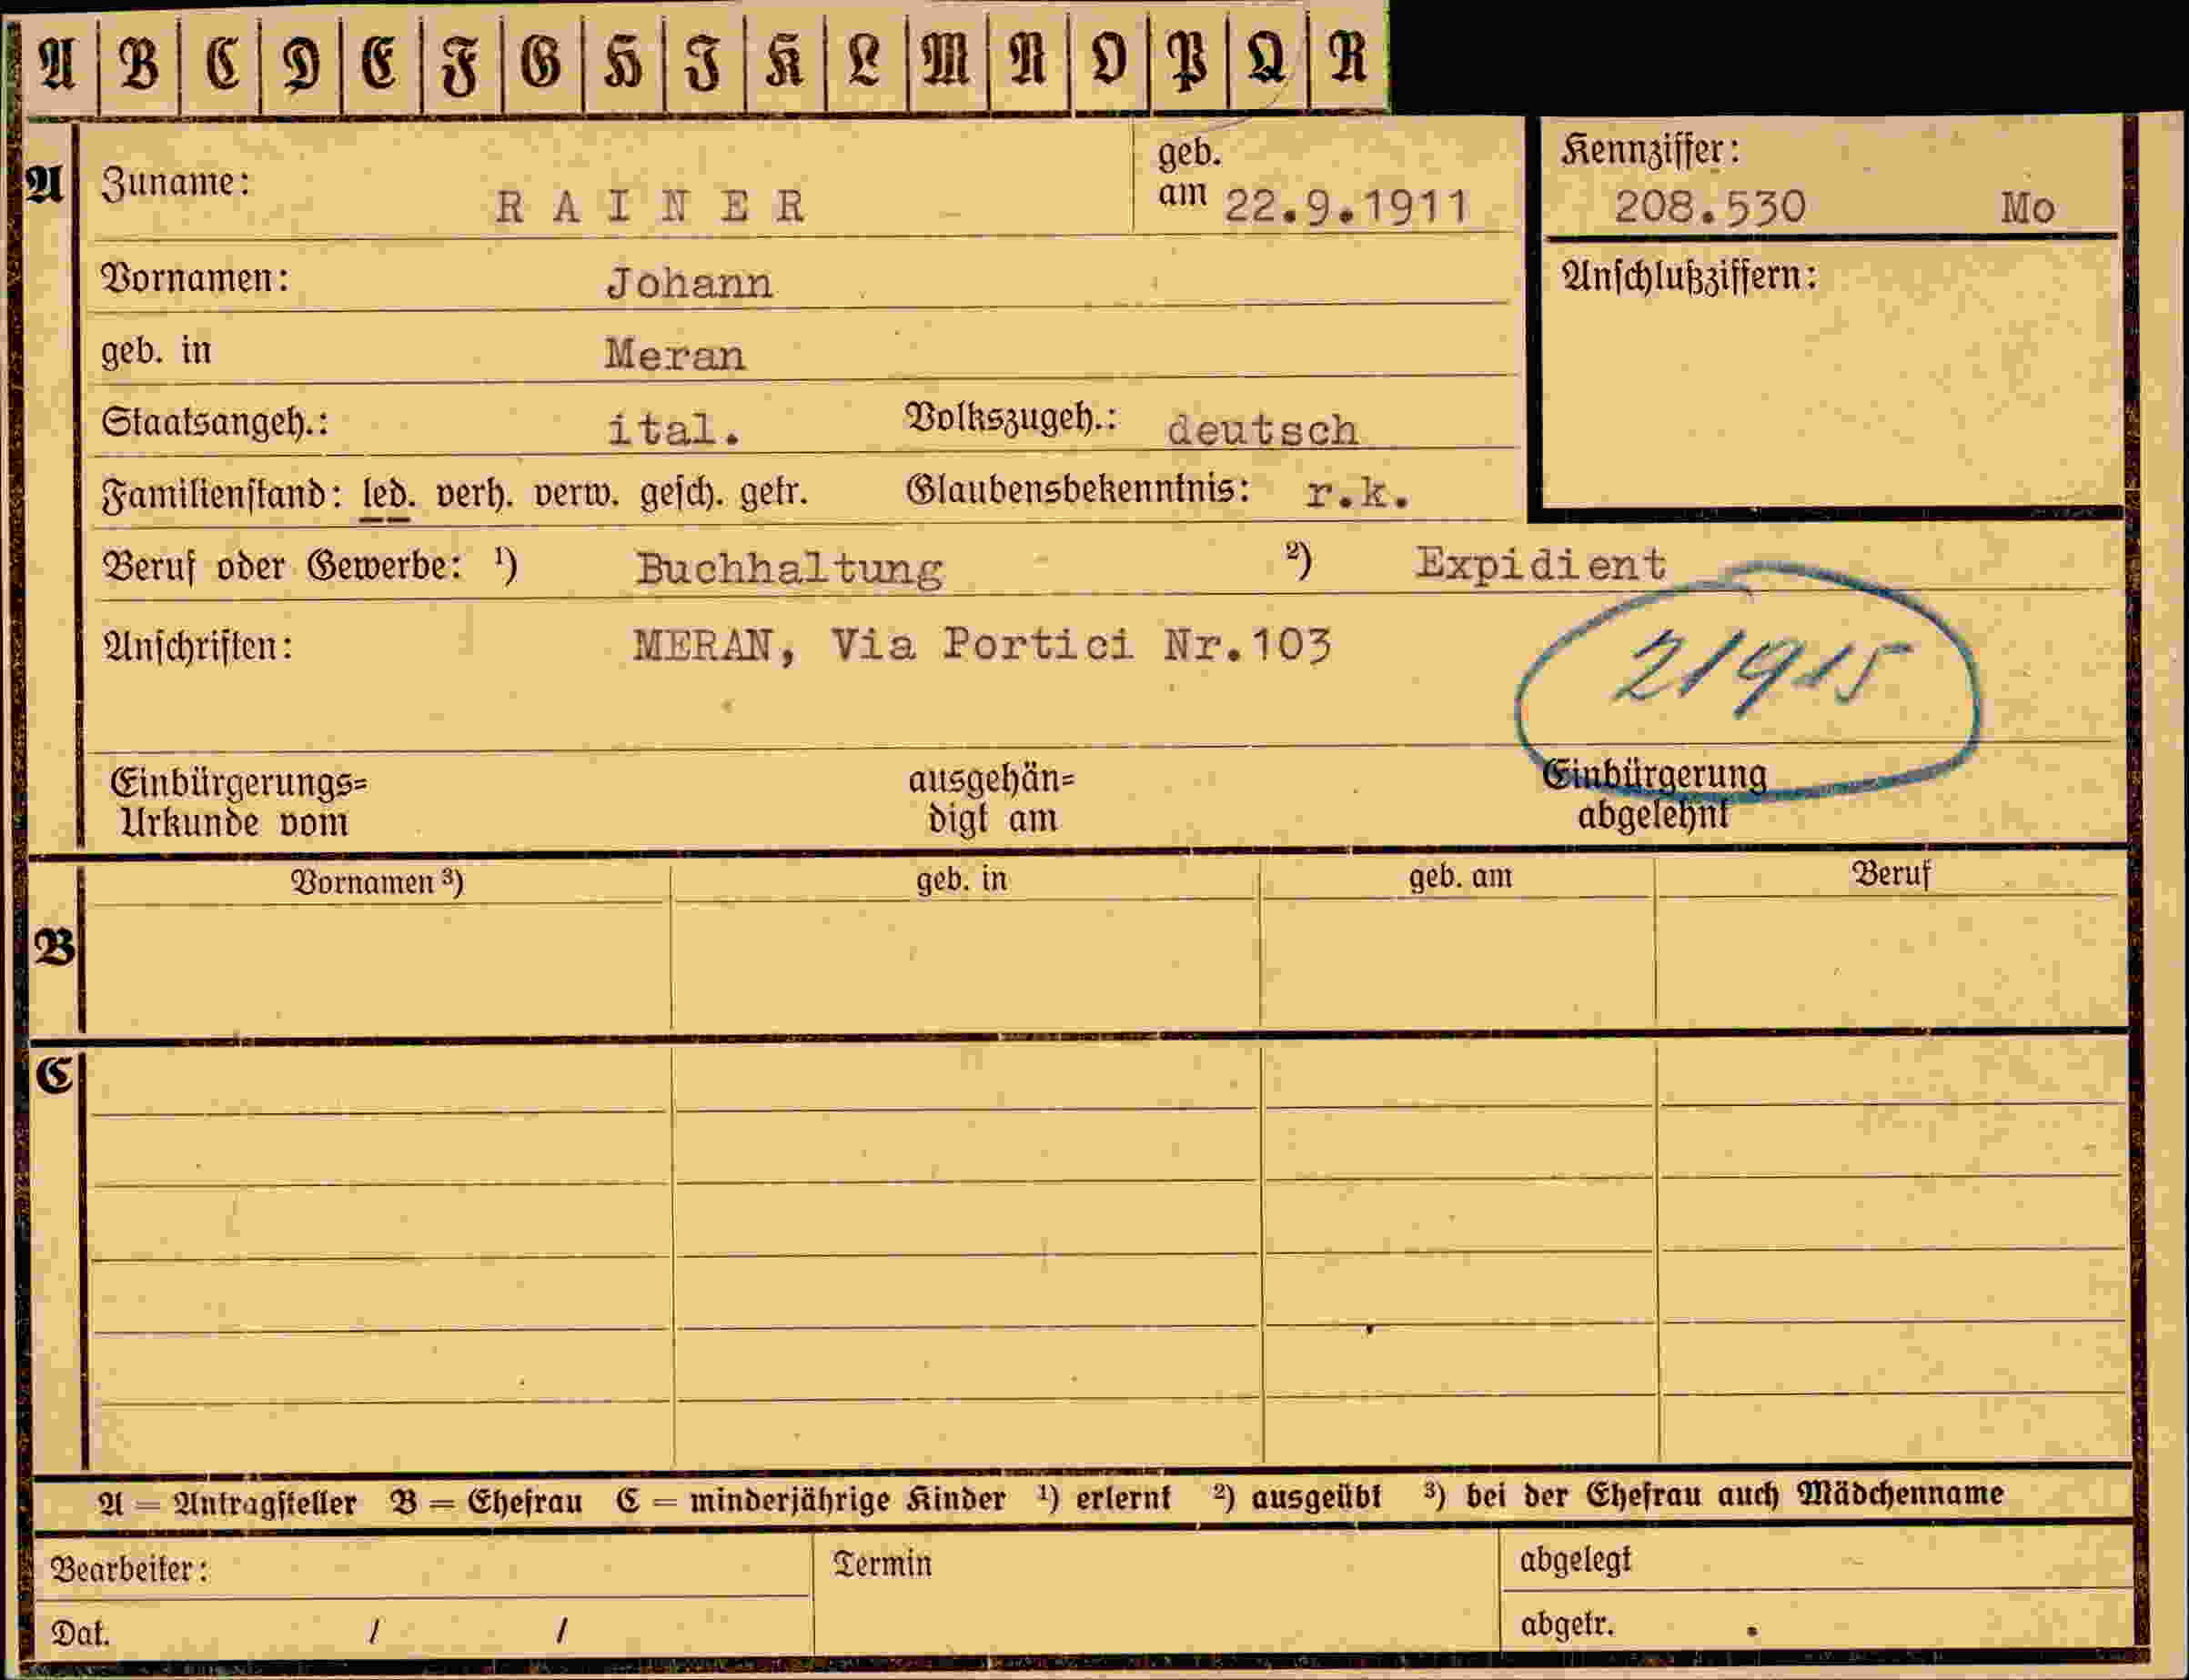 A B C D E F G H I K L M N O P Q R
A Zuname: RAINER geb. am 22.9.1911 Kennziffer: 208.530 Mo
Vornamen: Johann Anschlußziffern:
geb. in Meran
Staatsangeh.: ital. Volkszugeh.: deutsch
Familienstand: led. verh. verw. gesch. getr. Glaubensbekenntnis: r.k.
Beruf oder Gewerbe: 1) Buchhaltung 2) Expidient
Anschriften: MERAN, Via Portici Nr.103
21915
Einbürgerungs= ausgehän= Einbürgerung
Urkunde vom digt am abgelehnt
Vornamen 3) geb. in geb. am Beruf
B
C
A = Antragsteller B = Ehefrau C = minderjährige Kinder 1) erlernt 2) ausgeübt 3) bei der Ehefrau auch Mädchenname
Bearbeiter: Termin abgelegt
Dat. / / abgetr.